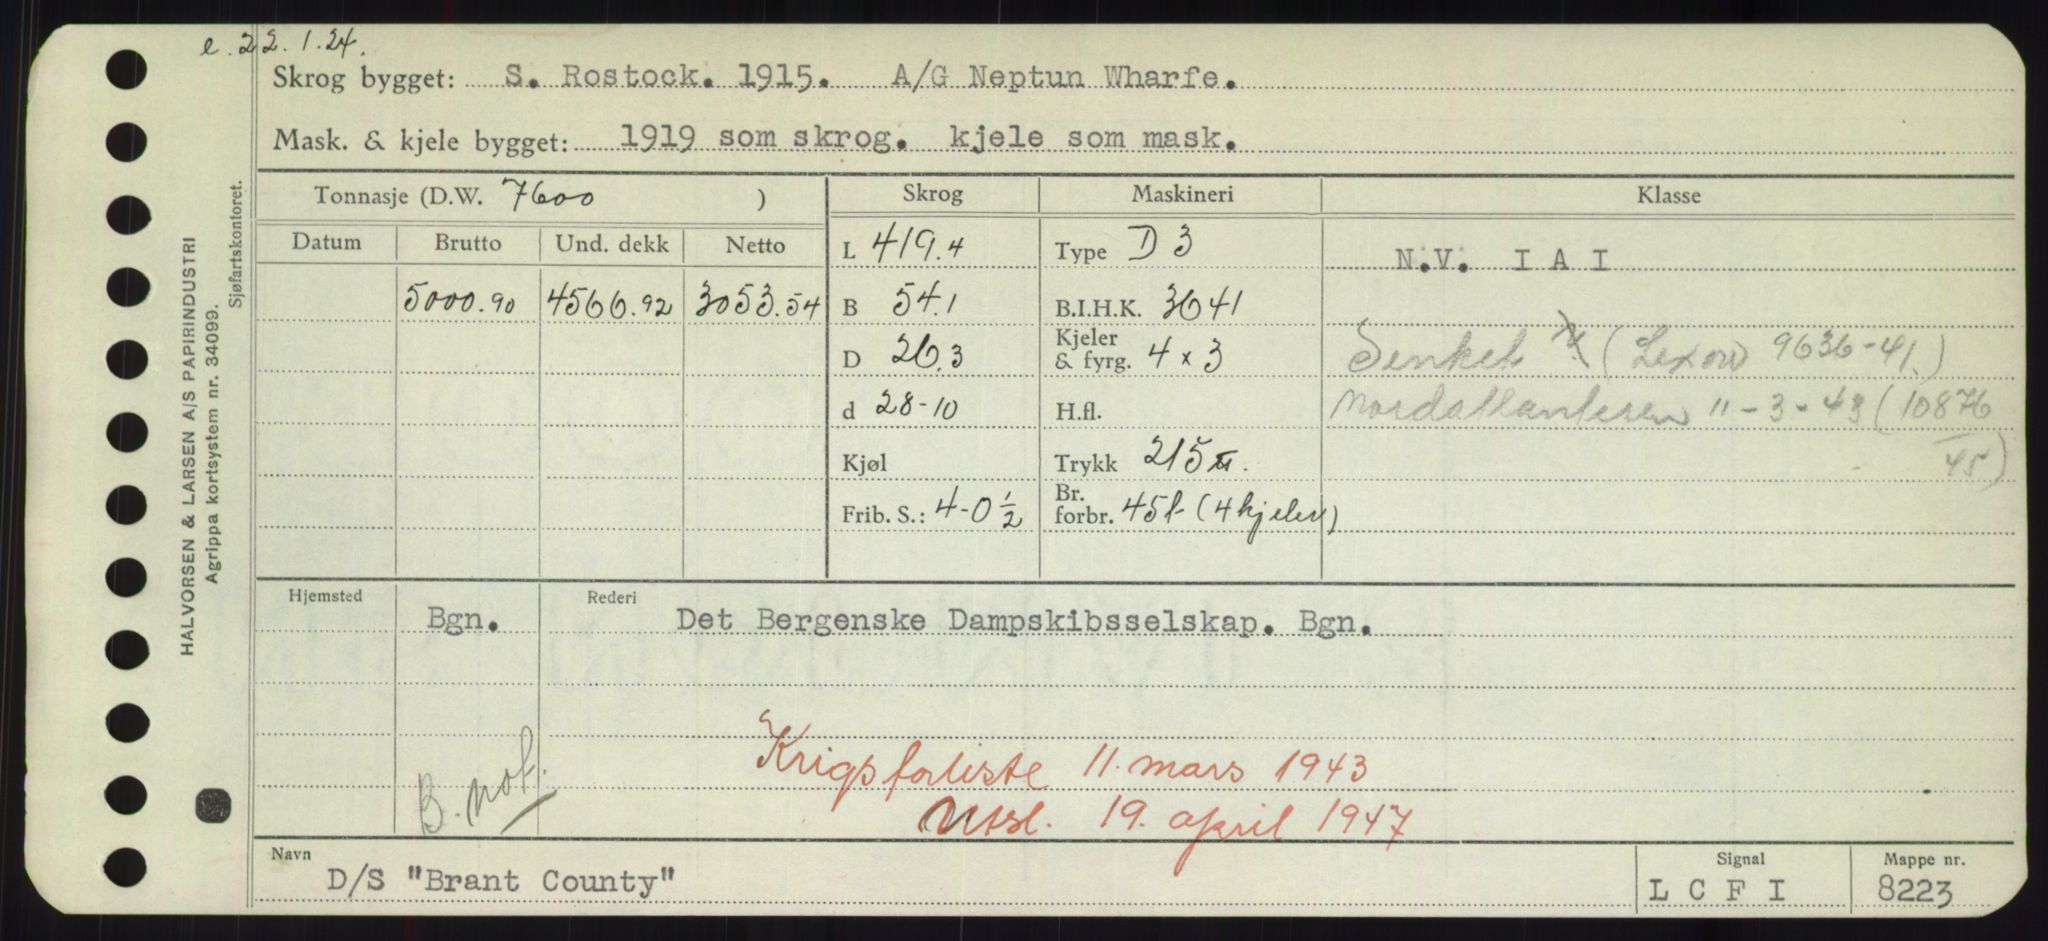 e. 22.1.24.
Skrog bygget: S. Rostock. 1915. A/G Neptun Wharfe.
Mask. & kjele bygget: 1919 som skrog. kjele som mask.
Tonnasje (D.W. 7600 ) Skrog Maskineri Klasse
Datum Brutto Und. dekk Netto L 419.4 Type D 3 N.V. I A I
5000.90 4566.92 3053.54 B 54.1 B.I.H.K. 3641
D 26.3 Kjeler & fyrg. 4 x 3 Senket (Lexow 9636-41.)
d 28-10 H.fl. Nordatlanteren 11-3-43 (10876
Kjøl Trykk 215 45)
Frib. S.: 4-0 1/2 Br. forbr. 45t (4 kjeler)
Hjemsted Bgn. Rederi Det Bergenske Dampskibsselskap. Bgn.
B. not. Krigsforliste 11. mars 1943
Utsl. 19. april 1947
Navn D/S "Brant County" Signal L C F I Mappe nr. 8223
HALVORSEN & LARSEN A/S PAPIRINDUSTRI
Agrippa kortsystem nr. 34099.
Sjøfartskontoret.